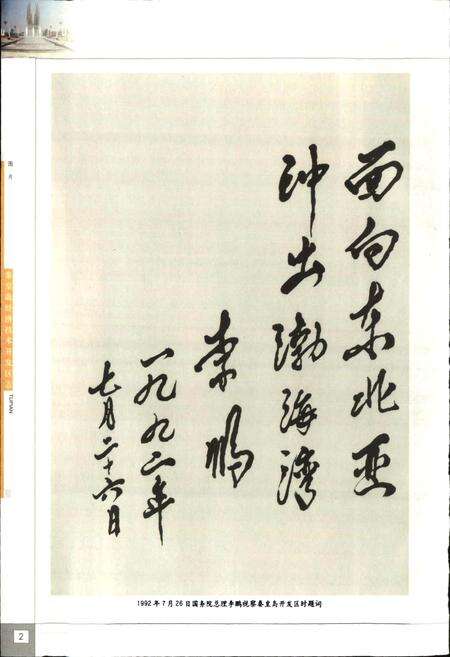 面向东北亚
冲出渤海湾
李鹏
一九九二年
七月二十六日
1992年7月26日国务院总理李鹏视察秦皇岛开发区时题词
图片
秦皇岛经济技术开发区志
TUPIAN
2